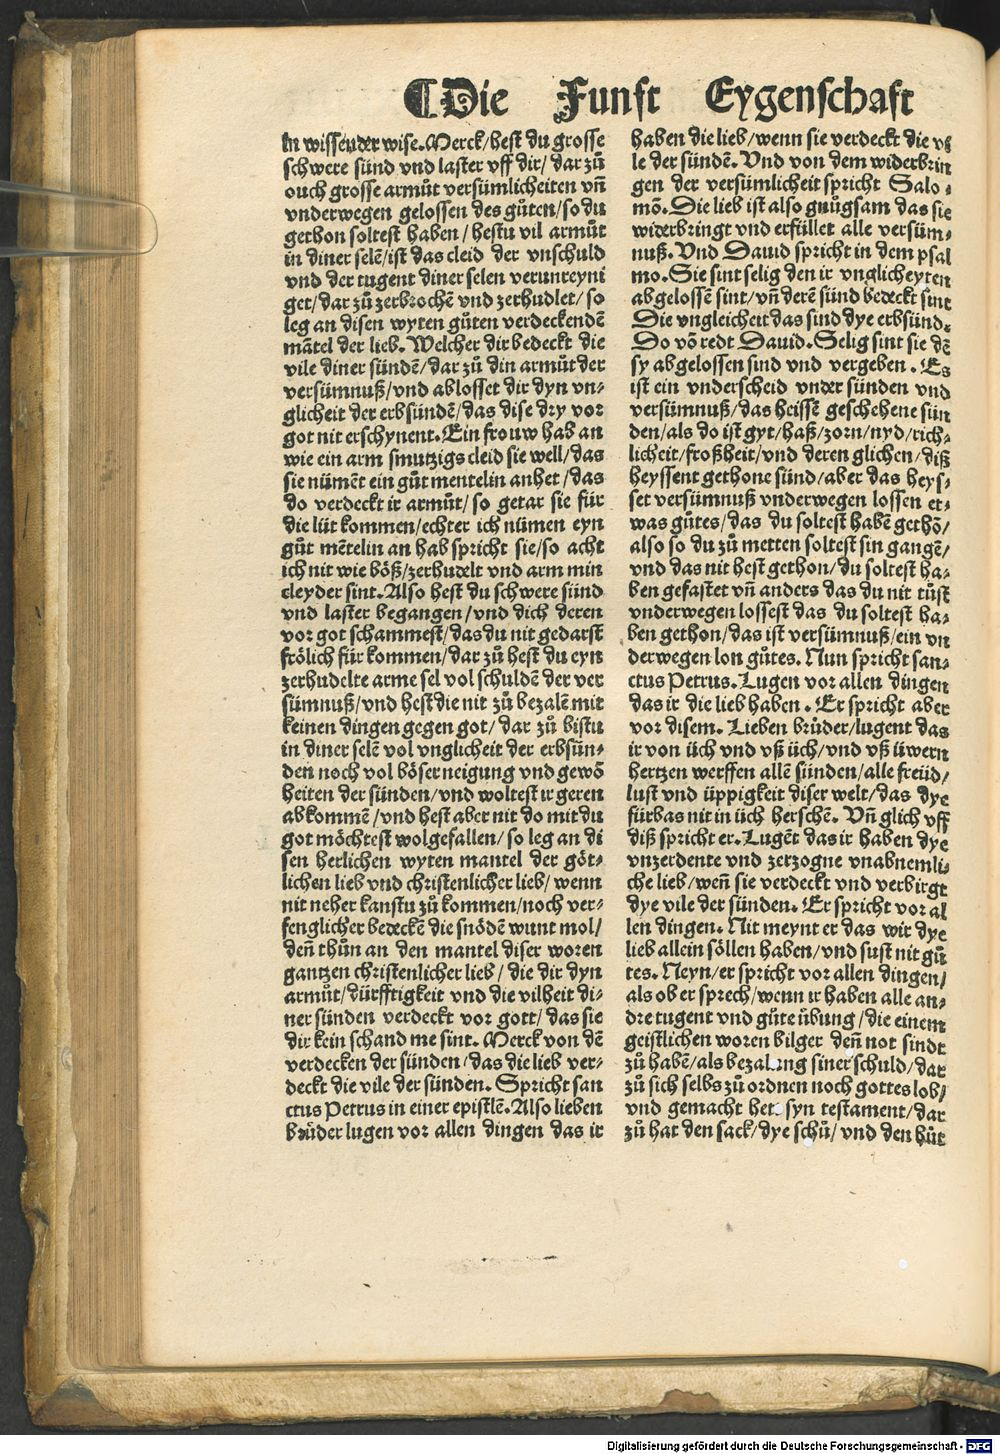 ¶Die Funft Eygenschaft
in wissender wise. Merck/hest du grosse
schwere sünd vnd laster vff dir/ dar zů
ouch grosse armůt versümlicheiten vñ
vnderwegen gelossen des gůten/so du
gethon soltest haben/ hestu vil armůt
in diner selē/ist das cleid der vnschuld
vnd der tugent diner selen verunreyni
get/dar zů zerbrochē vnd zerhudlet/ so
leg an disen wyten gůten verdeckendē
mātel der lieb. Welcher dir bedeckt die
vile diner sündē/dar zů din armůt der
versümnuß/vnd ablosset dir dyn vn⸗
glicheit der erbsündē/das dise dry vor
got nit erschynent. Ein frouw hab an
wie ein arm smutzigs cleid sie well/das
sie nümēt ein gůt mentelin anhet /das
do verdeckt ir armůt/ so getar sie für
die lüt kommen/echter ich nümen eyn
gůt mētelin an hab spricht sie/so acht
ich nit wie böß/zerhudelt vnd arm min
cleyder sint. Also hest du schwere sünd
vnd laster begangen/vnd dich deren
vor got schammest/das du nit gedarst
frölich für kommen/dar zů hest du eyn
zerhudelte arme sel vol schuldē der ver
sümnuß/vnd hest die nit zů bezalē mit
keinen dingen gegen got/dar zů bistu
in diner selē vol vnglicheit der erbsün⸗
den noch vol böser neigung vnd gewō
heiten der sünden/vnd woltest ir geren
abkommē/vnd hest aber nit do mit du
got möchtest wolgefallen/so leg an di
sen herlichen wyten mantel der göt⸗
lichen lieb vnd christenlicher lieb/ wenn
nit neher kanstu zů kommen/noch ver⸗
fenglicher bedeckē die snödēn wunt mol/
deñ thůn an den mantel diser woren
gantzen christenlicher lieb/ die dir dyn
armůt/dürfftigkeit vnd die vilheit di⸗
ner sünden verdeckt vor gott/das sie
dir kein schand me sint. Merck von dē
verdecken der sünden/das die lieb ver⸗
deckt die vile der sünden. Spricht san
ctus Petrus in einer epistlē. Also lieben
brüder lugen vor allen dingen das ir
haben die lieb/wenn sie verdeckt die vi
le der sündē. Vnd von dem widerbrin
gen der versümlicheit spricht Salo⸗
mō. Die lieb ist also gnůgsam das sie
widerbringt vnd erfüllet alle versüm⸗
nuß. Vnd Dauid spricht in dem psal
mo. Sie sint selig den ir vnglicheyten
abgelossē sint/vñ derē sünd bedeckt sint
Die vngleicheit das sind dye erbsünd.
Do vō redt Dauid. Selig sint sie dē
sy abgelossen sind vnd vergeben. Es
ist ein vnderscheid vnder sünden vnd
versümnuß/das heissē geschehene sün
den/als do ist gyt/haß/zorn/nyd/rich⸗
licheit/froßheit/vnd deren glichen/diß
heyssent gethone sünd/aber das heys⸗
set versümnuß vnderwegen lossen et⸗
was gůtes/das du soltest habē gethō/
also so du zů metten soltest sin gangē/
vnd das nit hest gethon/du soltest ha⸗
ben gefastet vñ anders das du nit tůst
vnderwegen lossest das du soltest ha⸗
ben gethon/das ist versümnuß/ein vn
derwegen lon gůtes. Nun spricht san⸗
ctus Petrus. Lugen vor allen dingen
das ir die lieb haben. Er spricht aber
vor disem. Lieben brüder/lugent das
ir von üch vnd vß üch/vnd vß üwern
hertzen werffen allē sünden/alle freüd/
lust vnd üppigkeit diser welt/das dye
fürbas nit in üch herschē. Vñ glich vff
diß spricht er. Lugēt das ir haben dye
vnzerdente vnd zerzogne vnabnemli⸗
che lieb/weñ sie verdeckt vnd verbirgt
dye vile der sünden. Er spricht vor al
len dingen. Nit meynt er das wir dye
lieb allein söllen haben/vnd sust nit gů
tes. Neyn/er spricht vor allen dingen/
als ob er sprech/wenn ir haben alle an⸗
dre tugent vnd gůte übung/die einem
geistlichen woren bilger deñ not sindt
zů habē/als bezalung siner schuld/dar
zů sich selbs zů ordnen noch gottes lob/
vnd gemacht het syn testament/dar
zů hat den sack/dye schů/ vnd den hůt
Digitalisierung gefördert durch die Deutsche Forschungsgemeinschaft - DFG